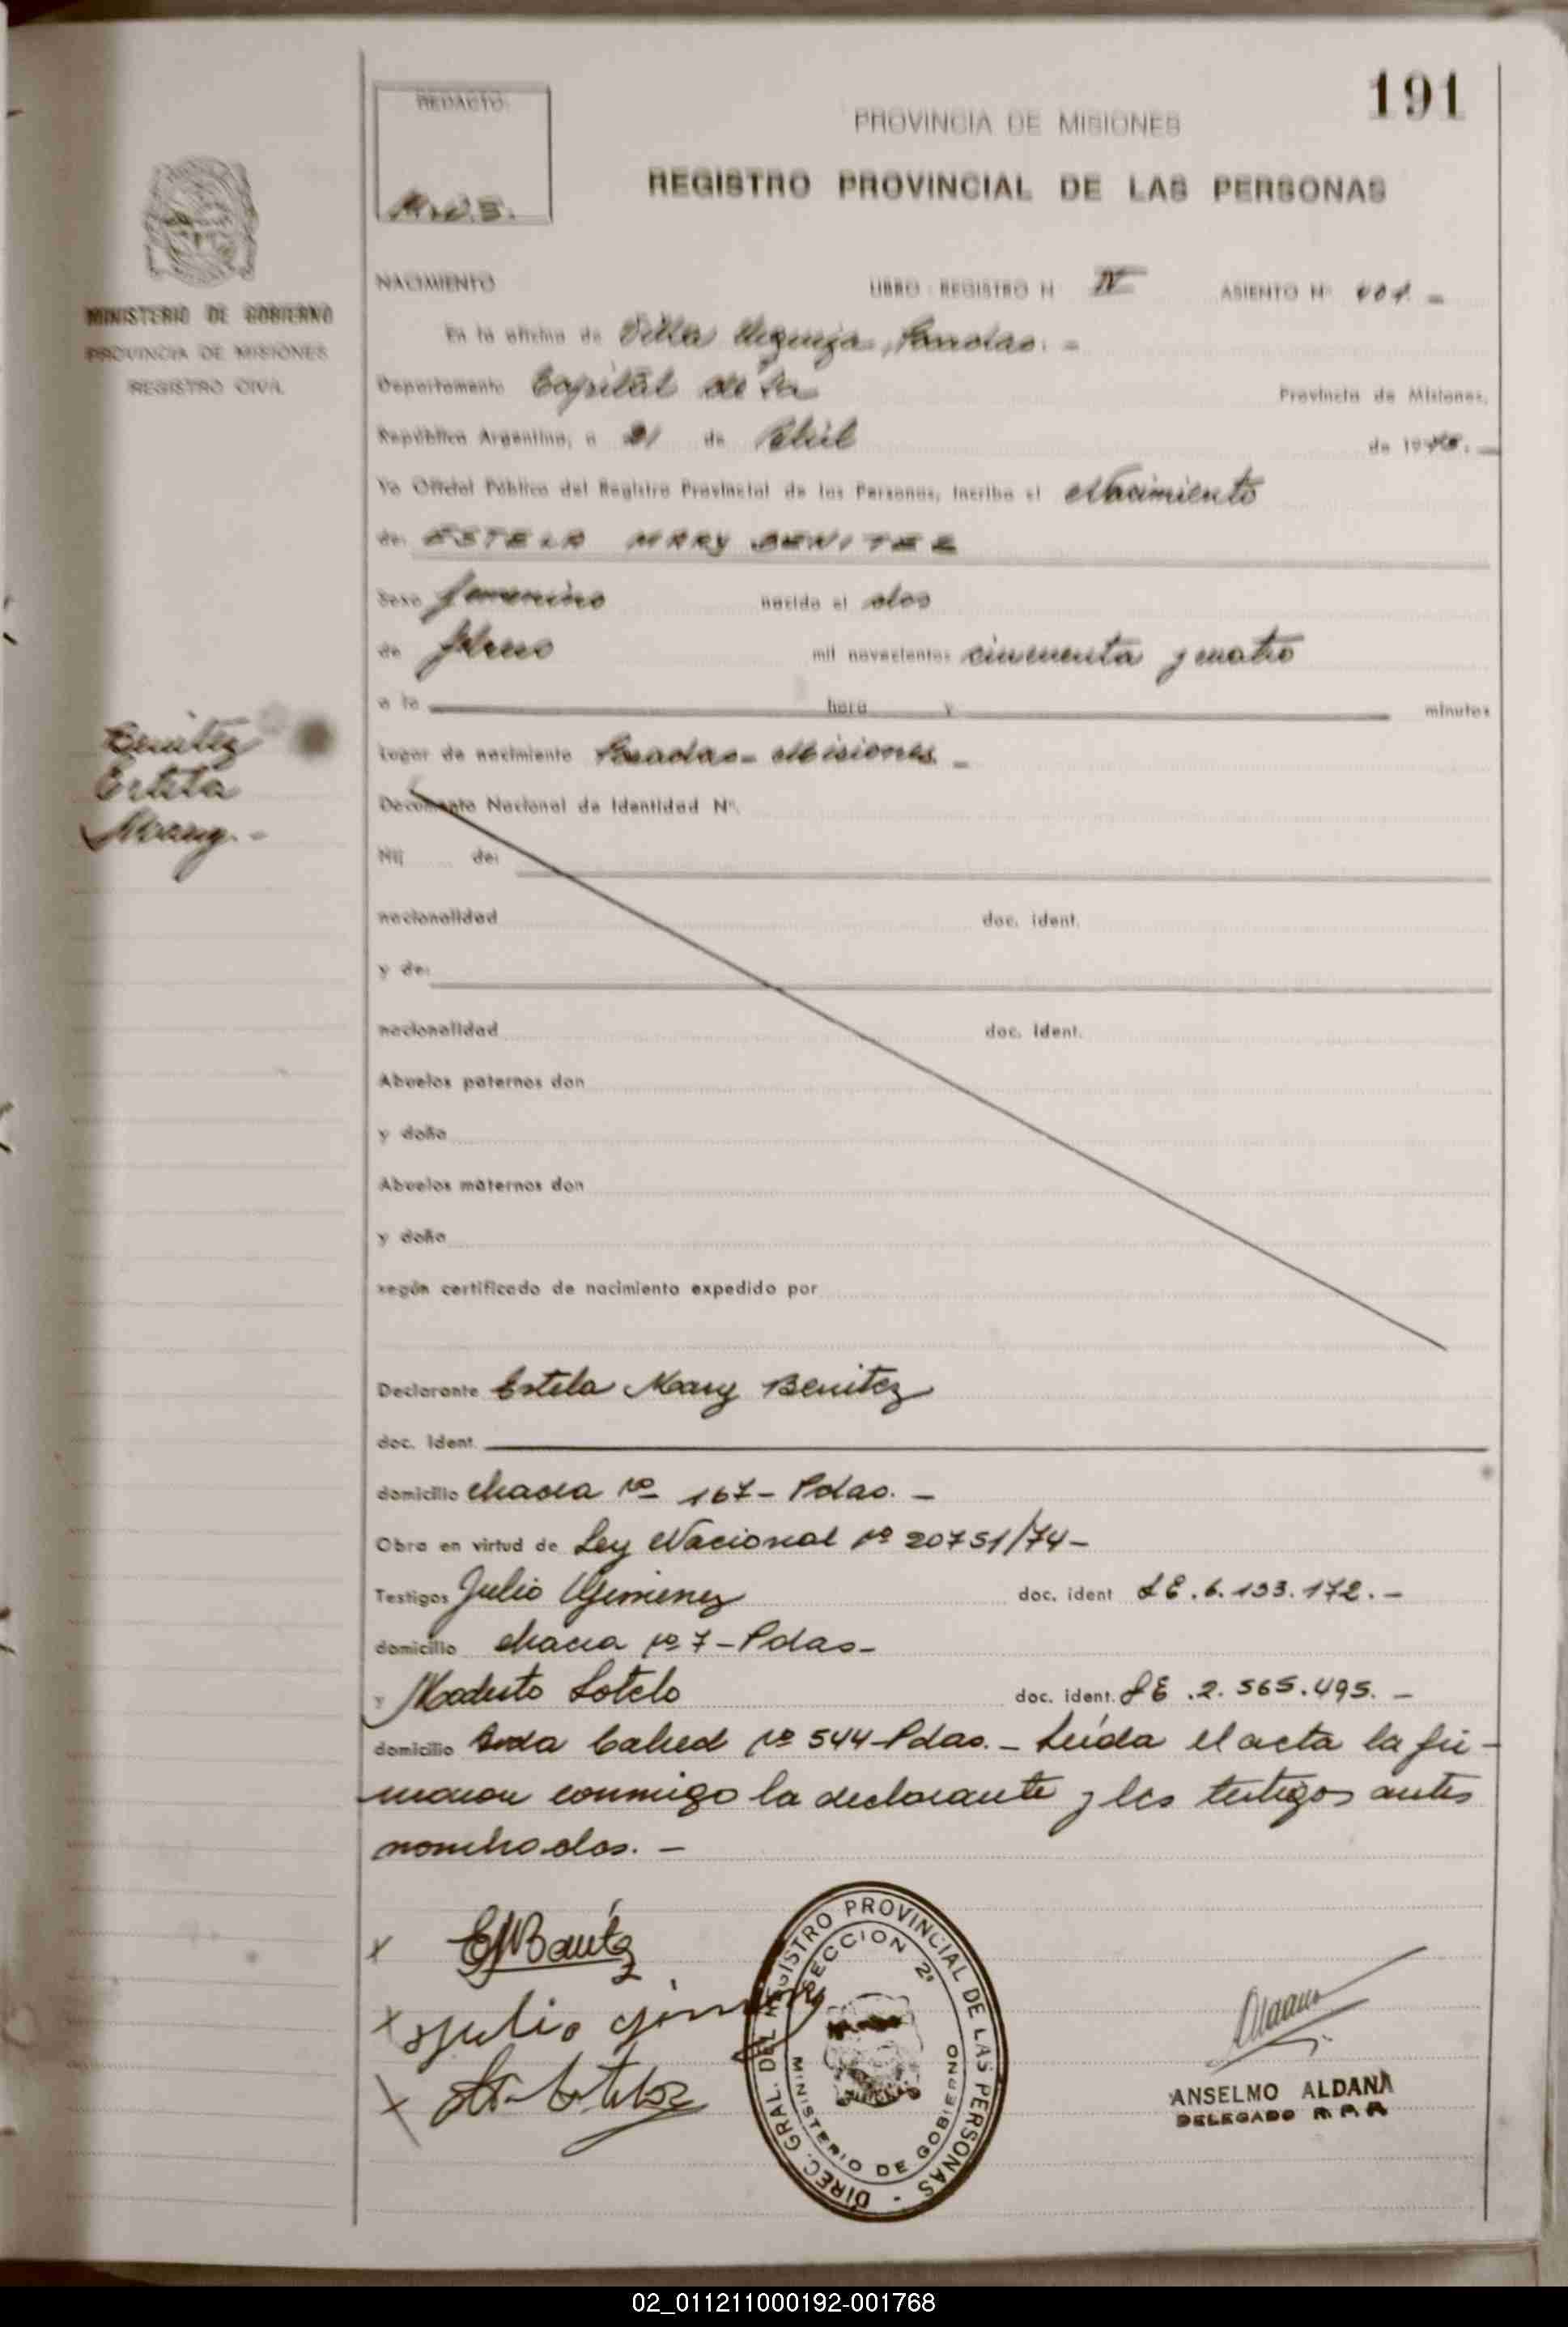 191
REDACTO:
PROVINCIA DE MISIONES
REGISTRO PROVINCIAL DE LAS PERSONAS
MINISTERIO DE GOBIERNO
PROVINCIA DE MISIONES
REGISTRO CIVIL
NACIMIENTO LIBRO REGISTRO N IV ASIENTO Nº
En la oficina de Villa Urquiza, Posadas. =
Departamento Capital de la Provincia de Misiones,
República Argentina, a 21 de Abril de 19
Yo Oficial Público del Registro Provincial de las Personas, inscribo el Nacimiento
de: ESTELA MARY BENITEZ
Sexo femenino nacido el dos
de mil novecientos cincuenta y cuatro
a la hora y minutos
Lugar de nacimiento Posadas - Misiones. -
Benitez
Estela
Mary. -
Documento Nacional de Identidad Nº.
Hij de:
nacionalidad doc. ident.
y de:
nacionalidad doc. ident.
Abuelos paternos don
y doña
Abuelos maternos don
y doña
según certificado de nacimiento expedido por
Declarante Estela Mary Benitez
doc. ident.
domicilio chacra Nº 167 - Pdas. -
Obra en virtud de Ley Nacional Nº 20751/74 -
Testigos Julio Gimenez doc. ident LE. 6.133.172. -
domicilio chacra Nº 7 - Pdas -
y Modesto Sotelo doc. ident. LE. 2.565.495. -
domicilio Avda Cabred Nº 544 Pdas. - Leída el acta la fir-
maron conmigo la declarante y los testigos antes
nombrados. -
x EMBenitez
x Julio Gimenez
x
DIREC. GRAL. DEL REGISTRO PROVINCIAL DE LAS PERSONAS -
SECCION 2ª
MINISTERIO DE GOBIERNO
ANSELMO ALDANA
DELEGADO
02_011211000192-001768